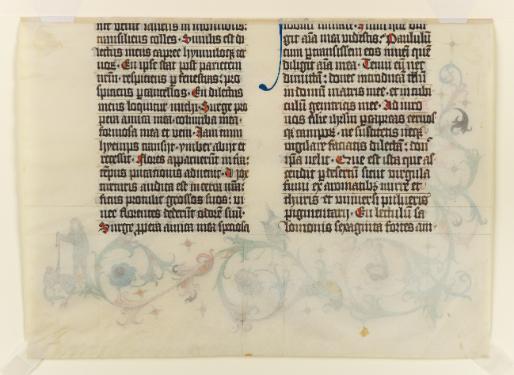 venit saliens in montibus:
transiliens colles. Similis est di
lectus meus capree hynnuloqʒ cer
uoꝝ. En ipse stat post parietem
nr̄m: respiciens ꝑ fenestras: pro
spiciens ꝑ cancellos. En dilectus
meus loquitur michi. Surge pro
pera amica mea columba mea:
formosa mea et veni. Iam enim
hyemps transijt: ymber abijt et
recessit. Flores apparuerunt in t̄ra:
tempus putationis aduenit. Uox
turturis audita est in terra nr̄a:
ficus protulit grossos suos: vi
nee florentes dederūt odorē suū.
Surge ꝓpera amica mea speciosa
Num quē dili
git aīa mea vidistis: Paululū
cum pertransissem eos inueni quē
diligit aīa mea. Tenui eū nec
dimittā: donec introducā illū
in domū matris mee: et in cubi
culū genitricis mee. Adiuro
vos filie ihrl̄m ꝑ capreas ceruos
qʒ campoꝝ: ne suscitetis neqʒ
vigilare faciatis dilectā: don
ipsa velit. Que est ista que as
cendit ꝑ desertū sicut virgula
fumi ex aromatibꝰ mirre et
thuris et vniuersi pulueris
pigmentarij. En lectulū sa
lomonis sexaginta fortes am